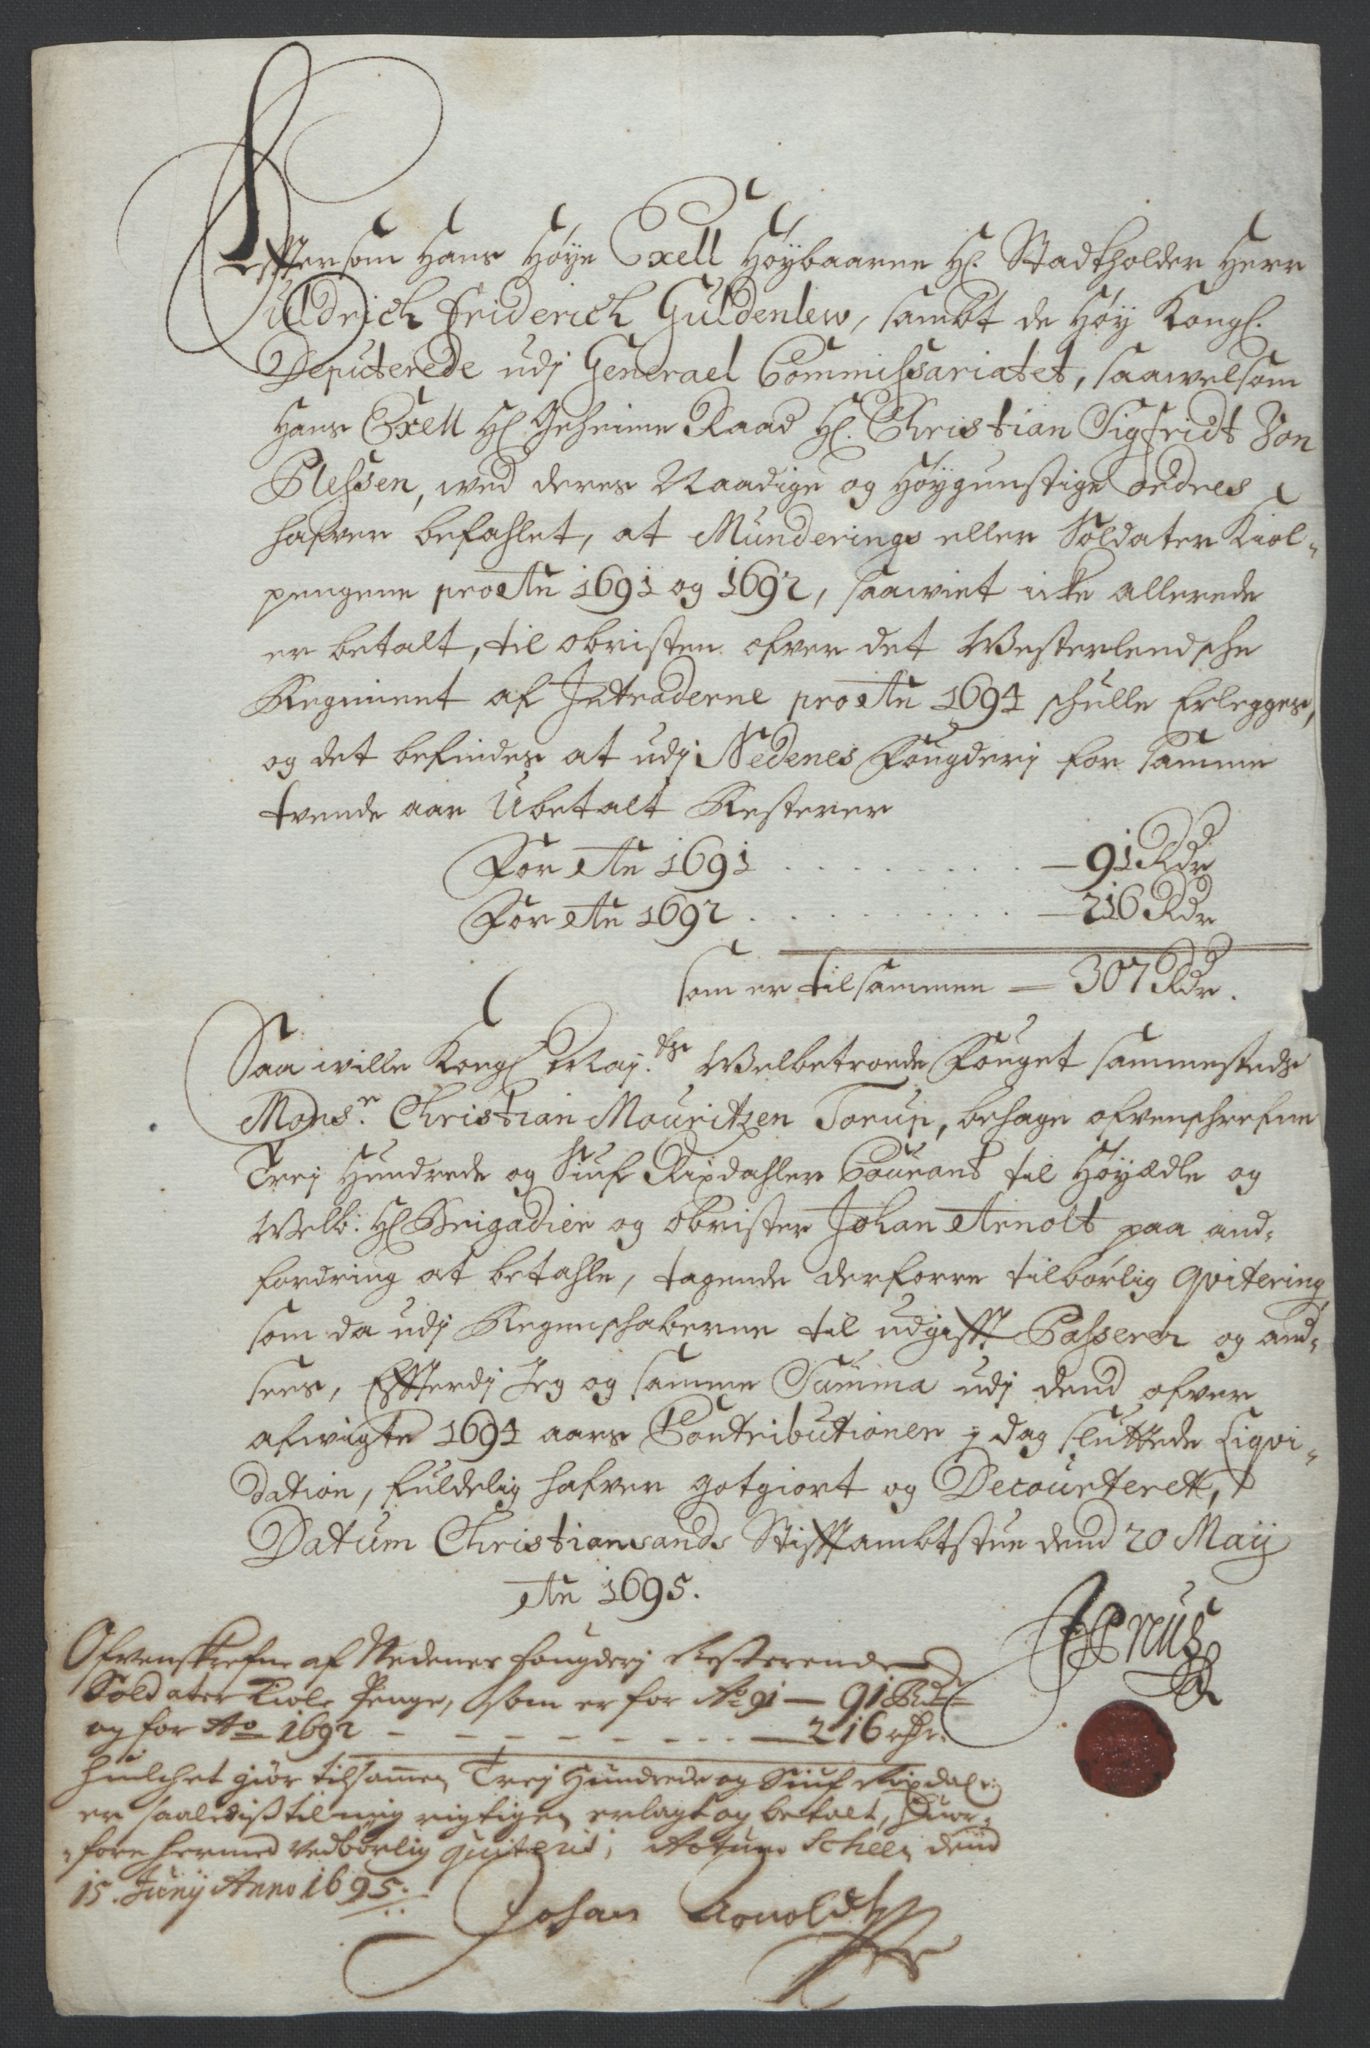 Efftersom Hans Høye Excell Høybaarne H. Stadtholder Herr
Uldrich Friderich Guldenlew, sambt de Høy Kongl.
Deputerede udj Generael Commissariatet, saawelsom
Hans Excell H. Geheime Raad H. Christian Sigfridt Von
Plessen, wed deres Naadige og Høygunstige ordres
hafver befahlet, at Munderings eller Soldater Kiol-
pengene pro Ao 1691 og 1692, saawiet icke allerede
er betalt, til obristen ofver det Westerlendsche
Regiment af Intraderne pro Ao 1694 schulle Erlegges,
og det befindes at udj Nedenes Fougderj for samme
tvende aar Ubetalt Resterer
For Ao 1691 . . . . . . . . — 91 Rdr
For Ao 1692 . . . . . . . . — 216 Rdr
som er tilsammen — 307 Rdr.
Saa wille Kongl Maj.ts Welbetroede Fouget sammestedz
Monsr. Christian Mouritzen Torup, behage ofvenschrefne
Trej Hundrede og Siuf Rixdahler Courant til Høyædle og
Welb. H. Brigadier og obrister Johan Arnolt paa and-
fordring at betahle, tagende derforre tilbørlig qvitering
som da udj Regenschaberne til udgifft Passerer og and-
sees, Effterdj Jeg og samme Summa udj dend ofver
afwigte 1694 aars Contributioner j dag sluttede Liqvi-
dation, fuldelig hafver gotgiort og Decourteret,
Datum Christiansands Stifftambtstue dend 20 Maij
Ao 1695.
Ofvenskrefne af Nedenes fougderj Resterende
Soldater Kiole Penge, som er for Ao 91 — 91 Rdr
og for Ao 1692 — — — — — 216 Rdr.
huilchet giør tilsammen Trej Hundrede og Siuf Rixdaler
er saaledis til mig rigtigen erlagt og betalt, huor-
fore hermed vedbørlig quiteris, Actum Scheen dend
15. Junij Anno 1695.
Johan Arnoldt